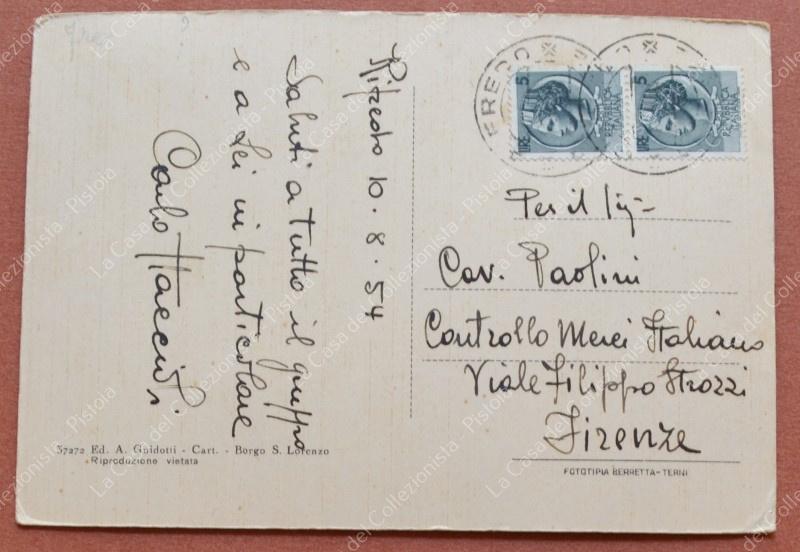 Rifredo 10.8.54
Saluti a tutto il gruppo
e a Lei in particolare
Carlo
5 LIRE REPUBBLICA ITALIANA
5 LIRE REPUBBLICA ITALIANA
Per il
Cav. Paolini
Controllo Merci Italiano
Viale Filippo Strozzi
Firenze
37272 Ed. A. Guidotti - Cart. - Borgo S. Lorenzo
Riproduzione vietata
FOTOTIPIA BERRETTA-TERNI
La Casa del Collezionista - Pistoia